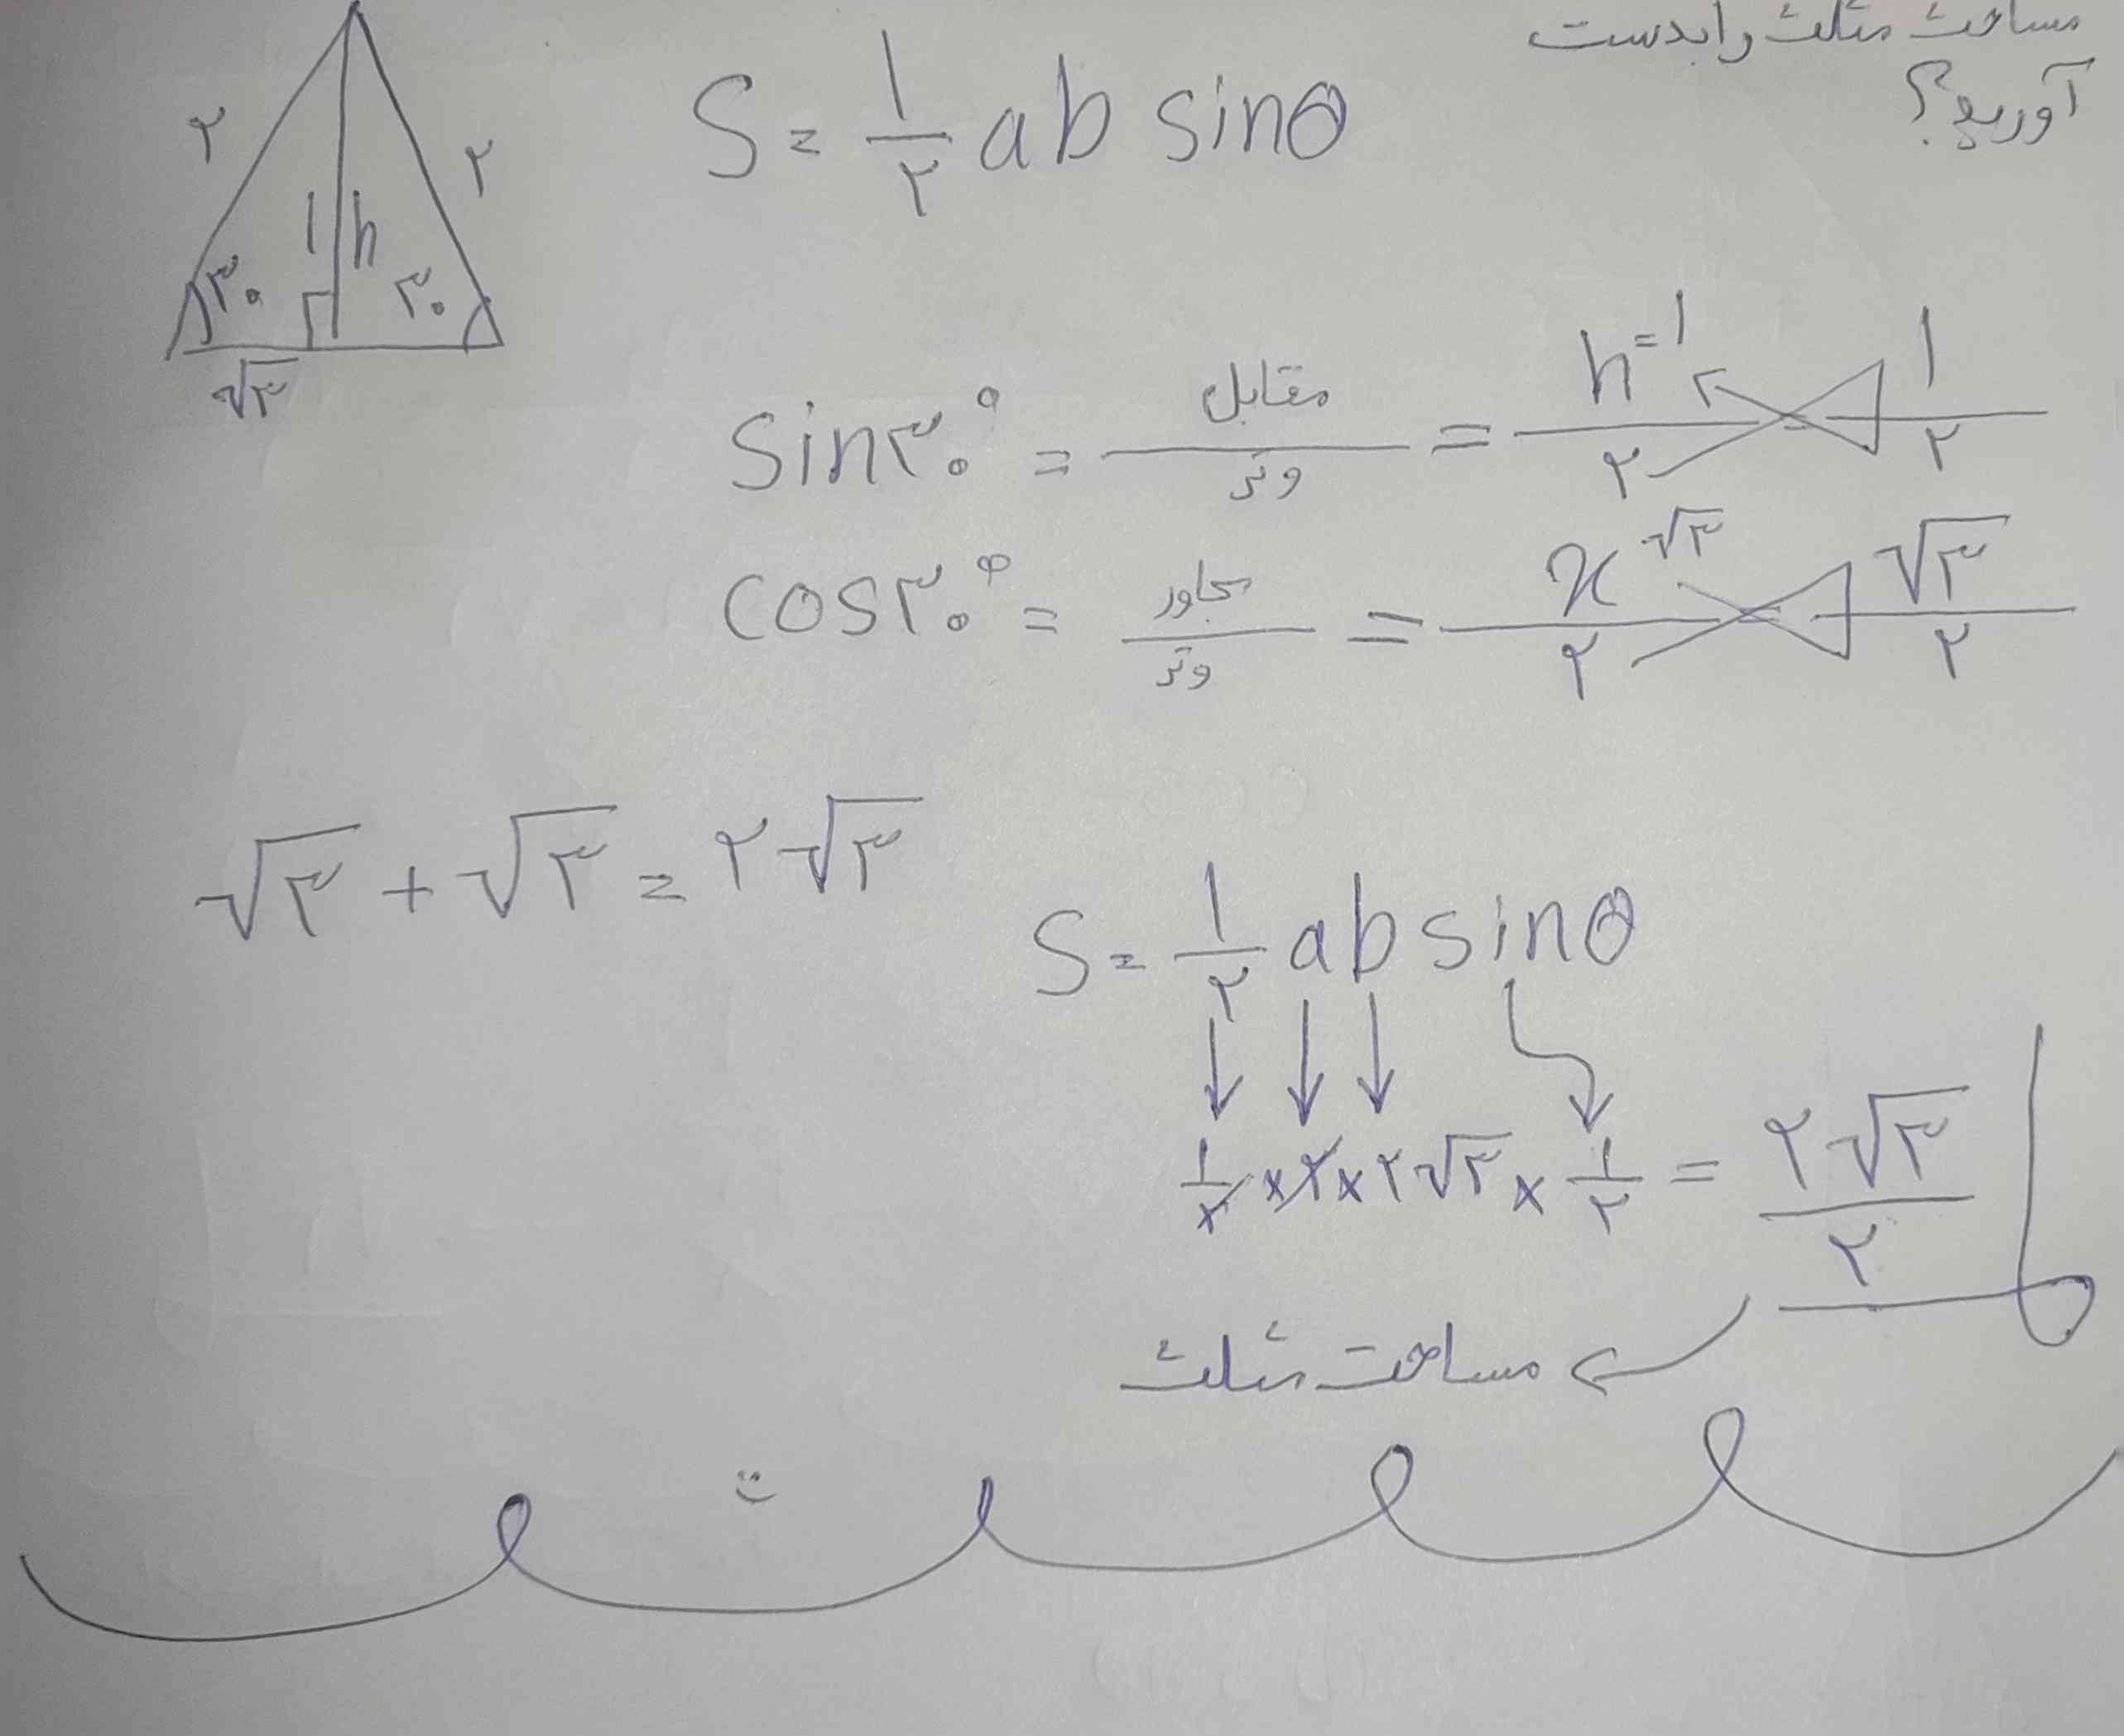 مساحت مثلث را بدست
آورید؟
S = ۱/۲ ab sinθ
۲ ۲
۱ h
۳۰ ۳۰
√۳
sin۳۰° = مقابل/وتر = h=۱/۲ = ۱/۲
cos۳۰° = مجاور/وتر = x √۳/۲ = √۳/۲
√۳ + √۳ = ۲√۳
S = ۱/۲ ab sinθ
۱/۲ × ۲ × ۲√۳ × ۱/۲ = ۲√۳/۲
مساحت مثلث